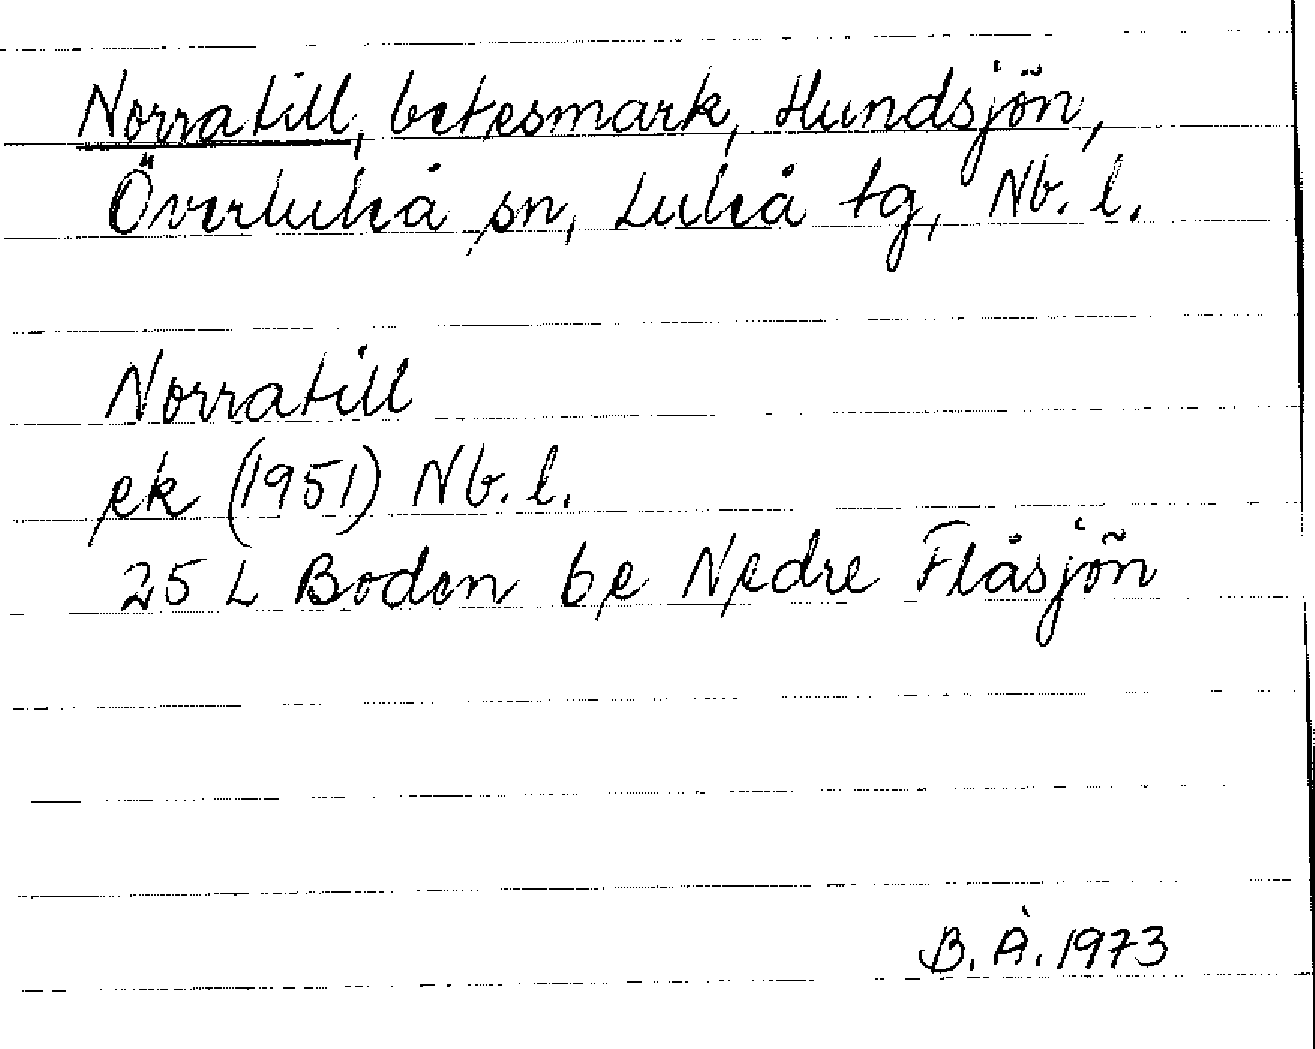 Norratill, betesmark, Hundsjön,
Överluleå sn, Luleå tg, Nb. l.
Norratill
ek (1951) Nb. l.
25 L Boden be Nedre Flåsjön
B. Å. 1973